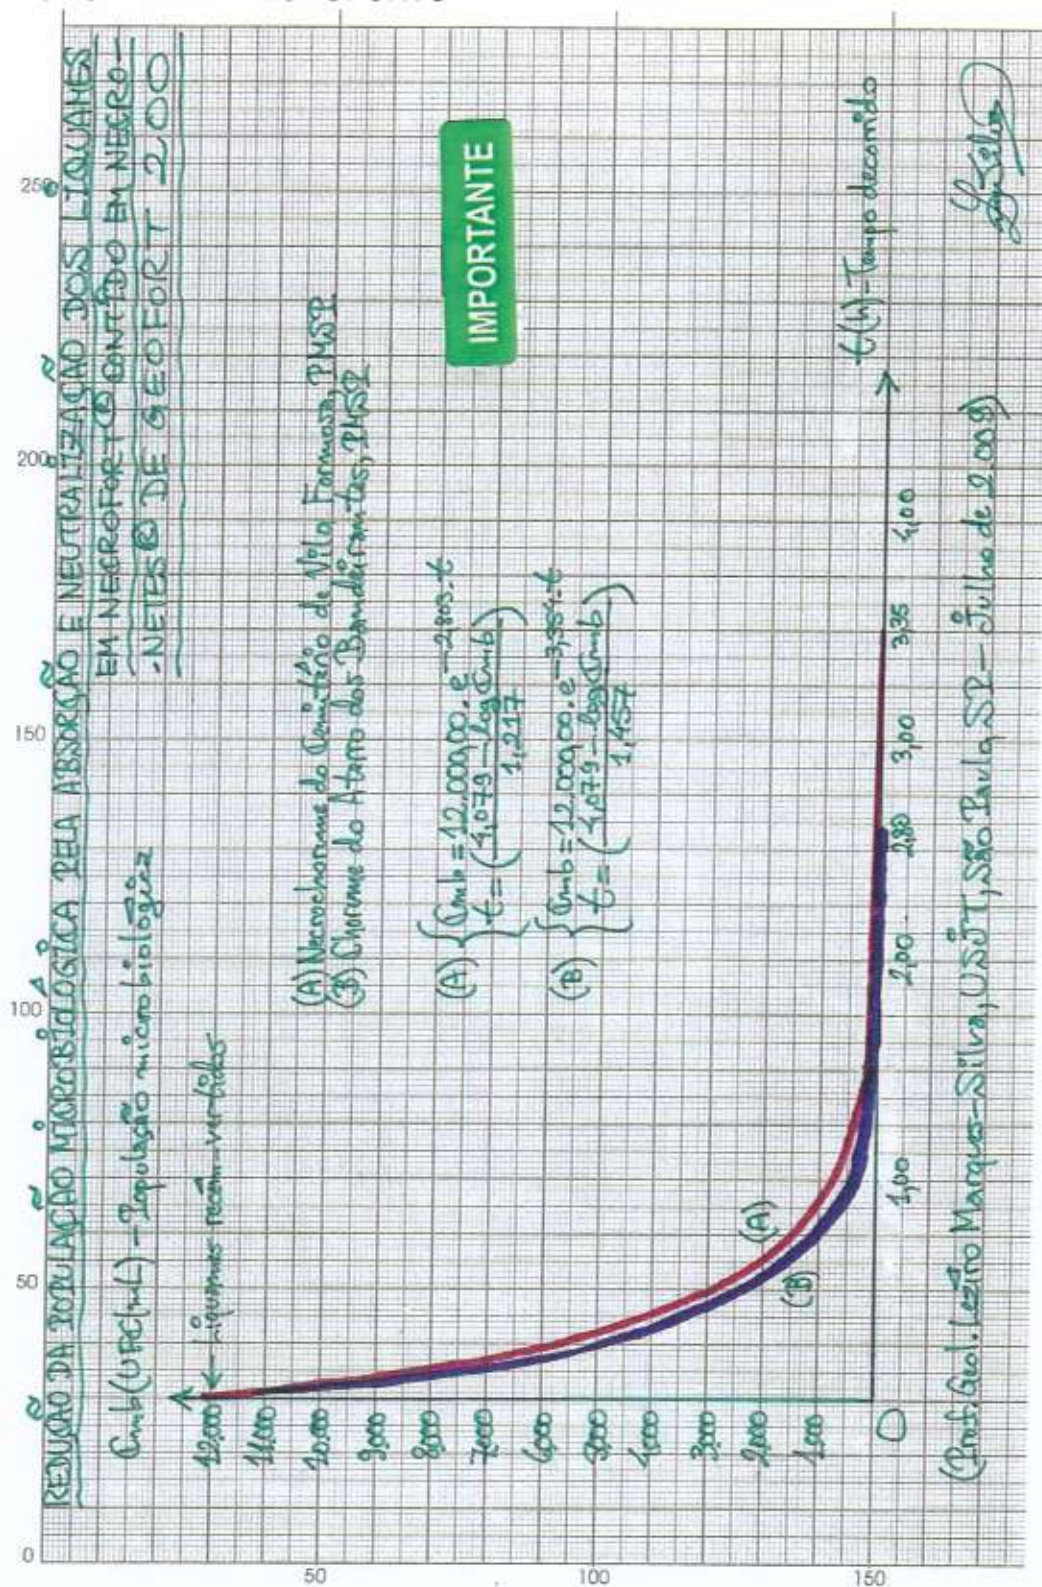 REDUÇÃO DA POPULAÇÃO MICROBIOLÓGICA PELA ABSORÇÃO E NEUTRALIZAÇÃO DOS LIQUAMES
EM NECROFORT® CONTIDO EM NECRO-
-NETES® DE GEOFORT 200
Cmb (UFC/mL) - População microbiológica
← Liquames recém-vertidos
(A) Necrochorume do Cemitério de Vila Formosa, PMSP
(B) Chorume do Aterro dos Bandeirantes, PMSP
IMPORTANTE
(A) { Cmb = 12.000,00 . e^-2,803.t
t = (4,079 - log Cmb / 1,217)
(B) { Cmb = 12.000,00 . e^-3,354.t
t = (4,079 - log Cmb / 1,457)
12,000
11,000
10,000
9,000
8,000
7,000
6,000
5,000
4,000
3,000
2,000
1,000
(A)
(B)
0
1,00
2,00
2,80
3,00
3,35
4,00
t(h) - Tempo decorrido
(Prof. Geól. Lezíro Marques-Silva, USJT, São Paulo, SP - Julho de 2.009)
0
50
100
150
200
250
50
100
150